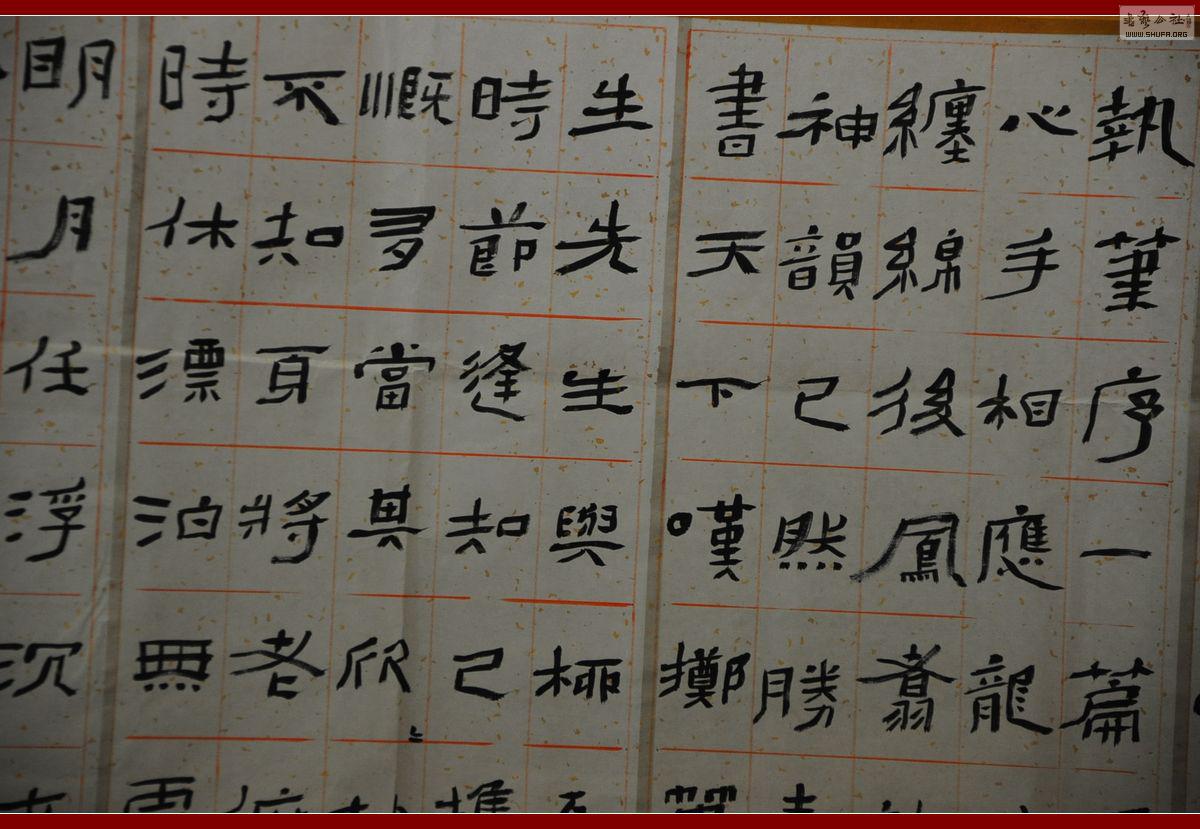 執筆序一篇
心手相應龍
纏綿後鳳翥
神韻已然勝
書天下嘆擲
生先生與
時節逢知己
慨多當其欣
不知將老
時休漂泊無
明月任浮沉
WWW.SHUFA.ORG